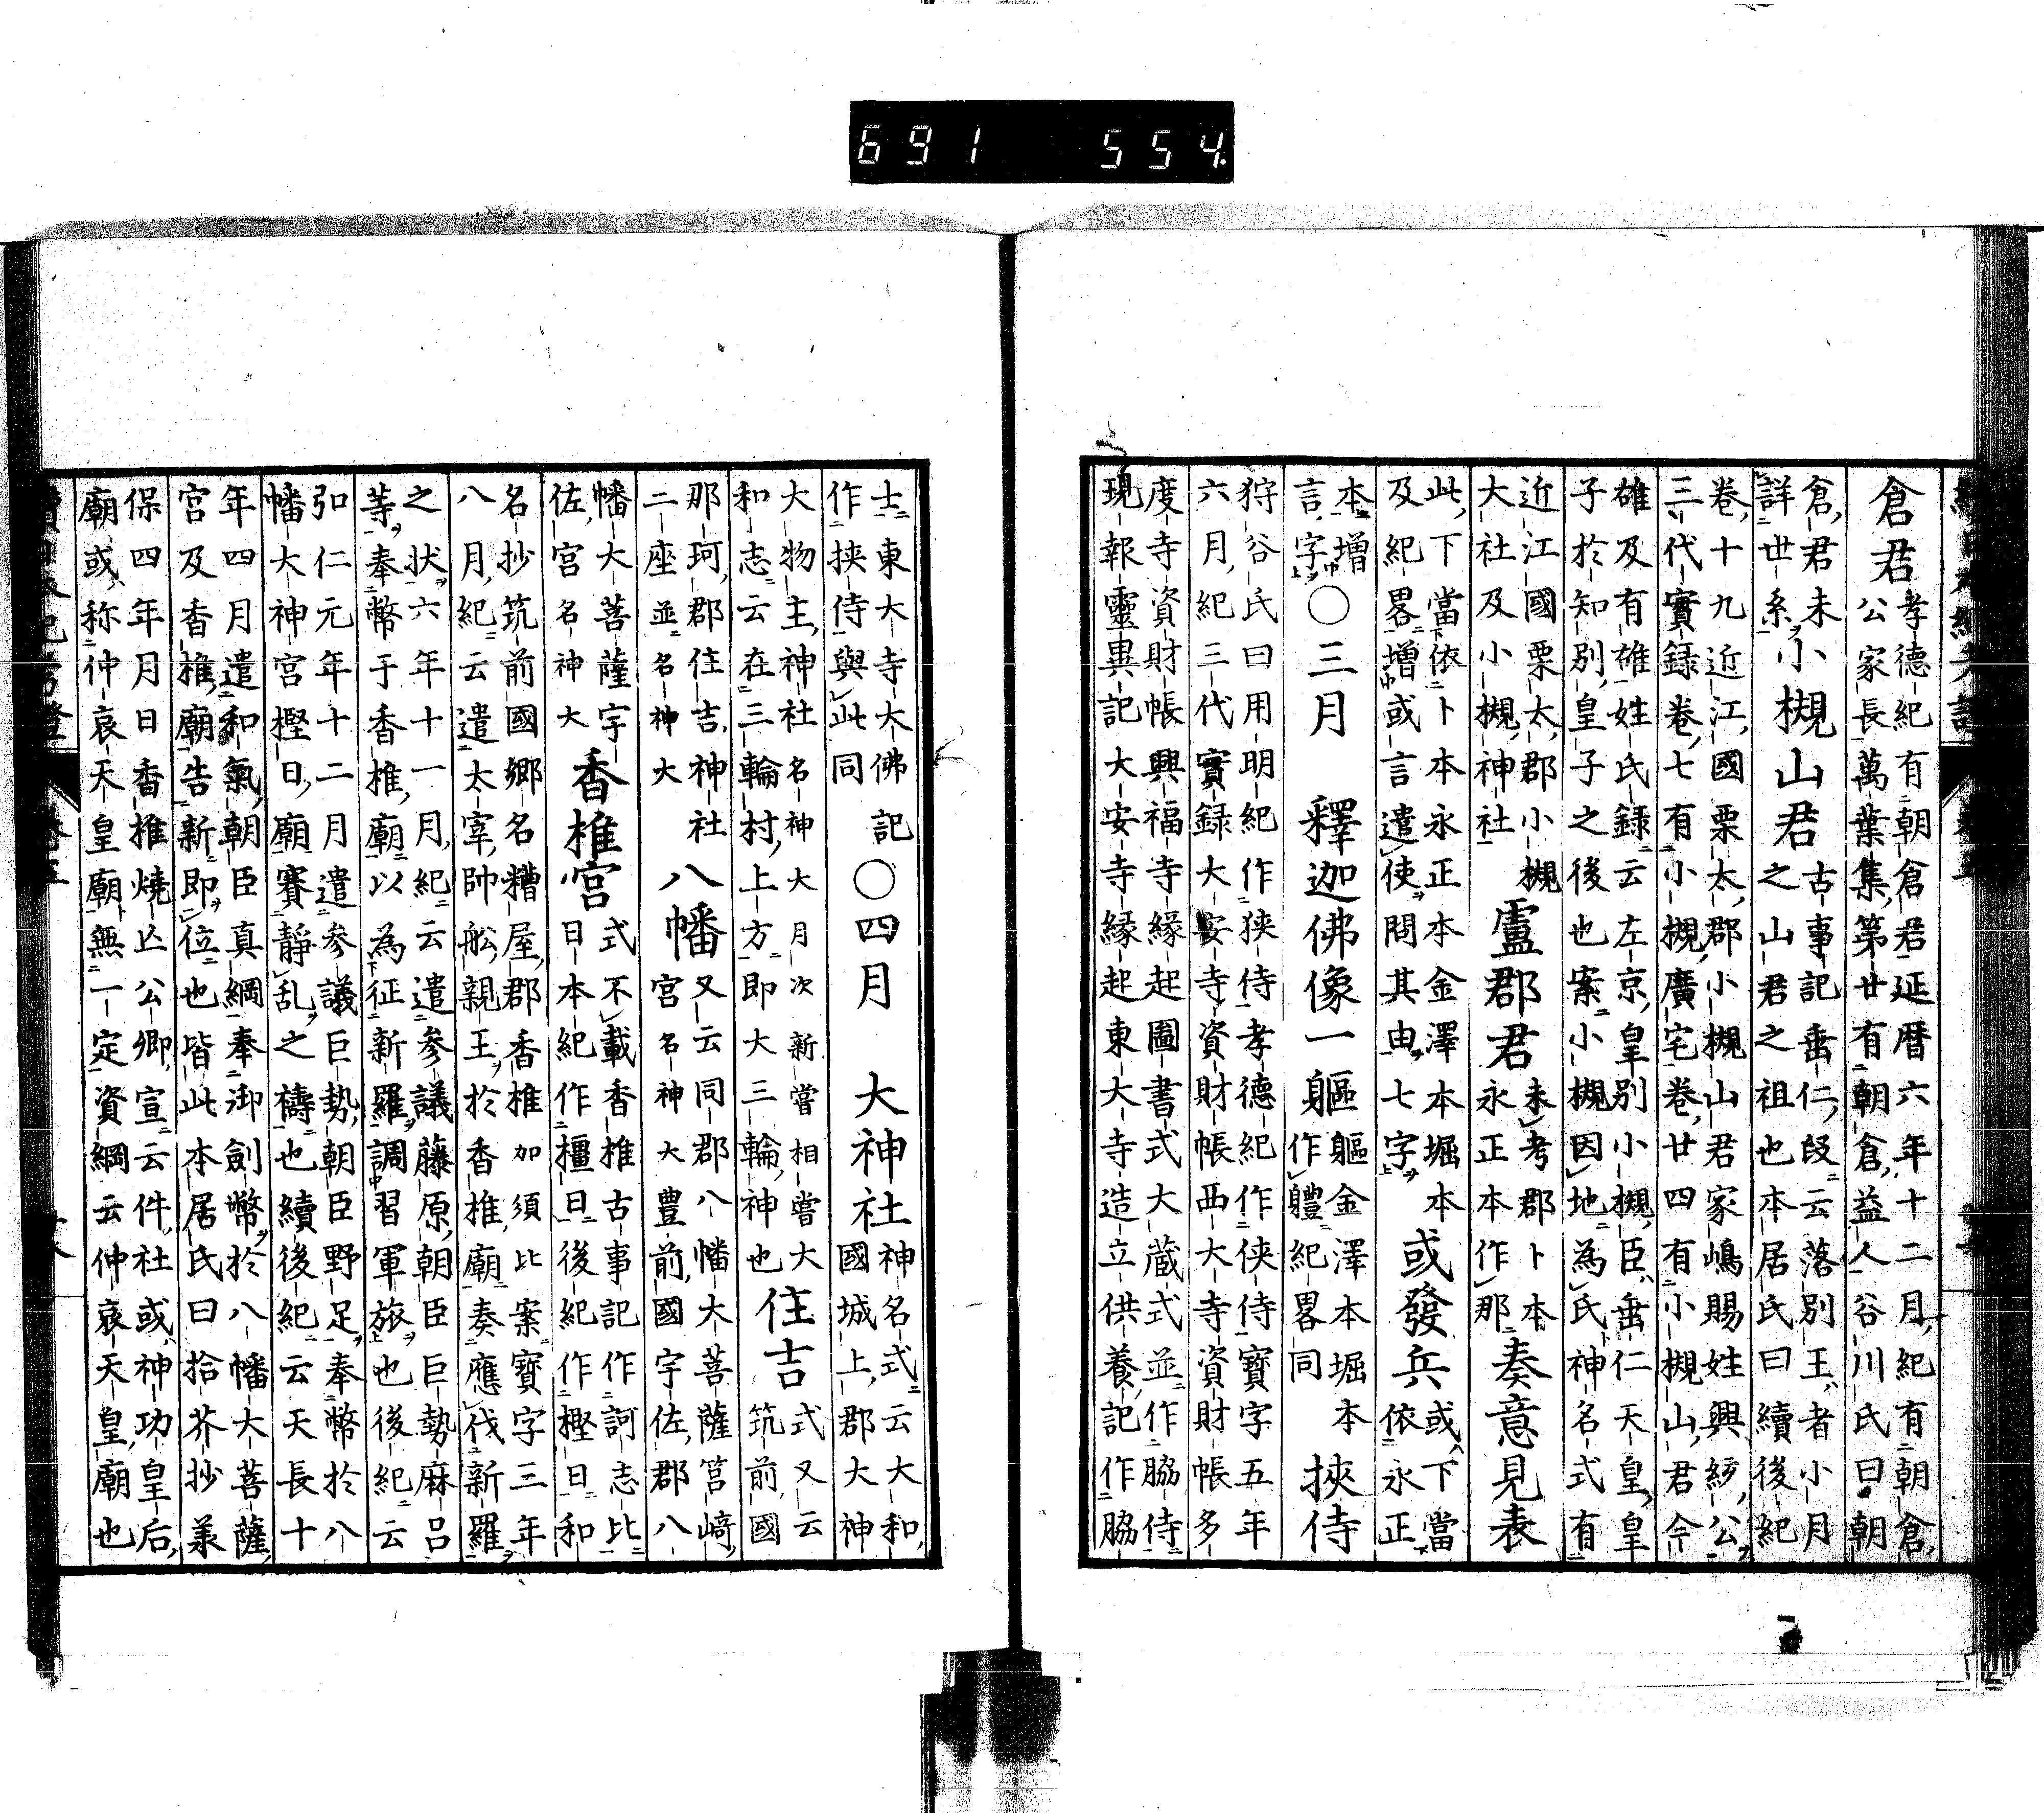 倉君孝德紀有朝倉君延暦六年十二月紀有朝倉
公家長萬葉集第廿有朝倉益人谷川氏曰朝
倉君未
詳世系小槻山君古事記垂仁段云落別王者小月
之山君之祖也本居氏曰續後紀
卷十九近江國栗太郡小槻山君家嶋賜姓興統公
三代實録卷七有小槻廣宅卷廿四有小槻山君今
雄及有雄姓氏録云左京皇別小槻臣垂仁天皇皇
子於知別皇子之後也案小槻因地為氏神名式有
近江國栗太郡小槻
大社及小槻神社 盧郡君未考郡卜本
永正本作那奏意見表
此下當依卜本永正本金澤本堀本
及紀畧增或言遣使問其由七字 或發兵或下當
依永正
本增
言字○三月 釋迦佛像一軀軀金澤本堀本
作軆紀畧同 挾侍
狩谷氏曰用明紀作狭侍孝德紀作侠侍寶字五年
六月紀三代實録大安寺資財帳西大寺資財帳多
度寺資財帳興福寺縁起圖書式大蔵式並作脇侍
現報靈異記大安寺縁起東大寺造立供養記作脇
士東大寺大佛記
作挟侍與此同○四月 大神社神名式云大和
國城上郡大神
大物主神社名神大月次新嘗相嘗大
和志云在三輪村上方即大三輪神也住吉式又云
筑前國
那珂郡住吉神社
二座並名神大 八幡又云同郡八幡大菩薩筥崎
宮名神大豊前國宇佐郡八
幡大菩薩宇
佐宮名神大香椎宮式不載香椎古事記作訶志比
日本紀作橿日後紀作樫日和
名抄筑前國郷名糟屋郡香椎加須比案寶字三年
八月紀云遣太宰帥船親王於香椎廟奏應伐新羅
之状六年十一月紀云遣參議藤原朝臣巨勢麻呂
等奉幣于香椎廟以為征新羅調習軍旅也後紀云
弘仁元年十二月遣参議巨勢朝臣野足奉幣於八
幡大神宮樫日廟賽静乱之禱也續後紀云天長十
年四月遣和氣朝臣真綱奉御劍幣於八幡大菩薩
宮及香椎廟告新即位也皆此本居氏曰拾芥抄羕
保四年月日香椎燒亡公卿宣云件社或神功皇后
廟或称仲哀天皇廟無一定資綱云仲哀天皇廟也
691 554